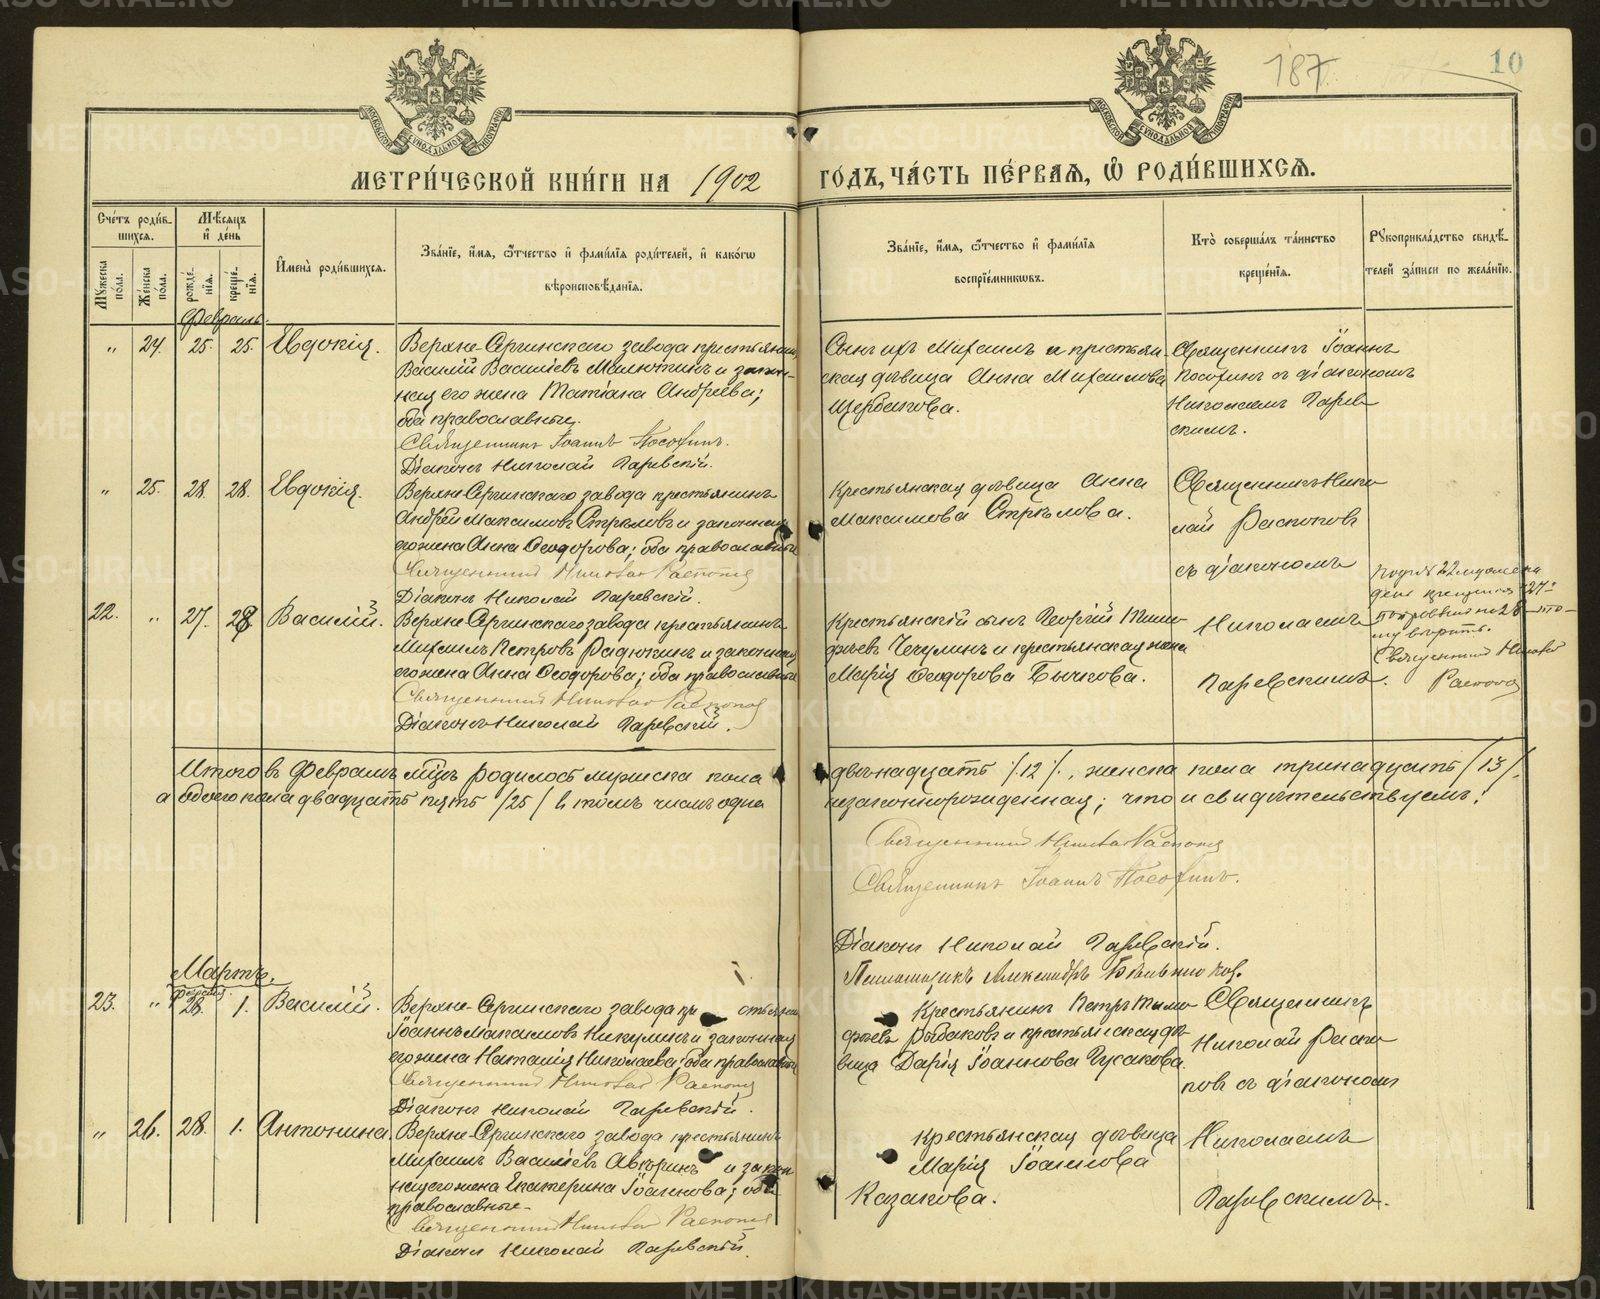 187.
10
МЕТРИ́ЧЕСКОЙ КНИ́ГИ НА 1902 ГОДЪ, ЧА́СТЬ ПЕ́РВАЯ, Ѽ РОДИ́ВШИХСЯ.
Сче́тъ роди́вшихся.
Му́жеска по́ла.
Же́нска по́ла.
Мѣ́сяцъ и̂ де́нь
рожде́нїя.
креще́нїя.
И̂мена̀ роди́вшихся.
Зва́нїе, и́мя, ѻ҆́тчество и̂ фами́лїя роди́телей, и̂ како́гѡ
вѣроисповѣ́данїя.
Зва́нїе, и́мя, ѻ҆́тчество и̂ фами́лїя
воспрїе́мникѡвъ.
Кто̀ соверша́лъ та́инство
креще́нїя.
Рꙋкоприкла́дство свидѣ́телей за́писи по жела́нїю.
Февраль.
" 24. 25. 25. Евдокія.
Верхне-Сергинскаго завода крестьянинъ
Василій Васильевъ Малютинъ и закон-
ная его жена Татіана Андреева;
оба православные.
Священникъ Іоаннъ
Діаконъ Николай Паревскій.
Сынъ ихъ Михаилъ и крестьян-
ская дѣвица Анна Михаилова
Щербакова.
Священникъ Іоаннъ
съ діакономъ
Николаемъ Парев-
скимъ.
" 25. 28. 28. Евдокія.
Верхне-Сергинскаго завода крестьянинъ
Андрей Максимовъ Стрѣловъ и законная
его жена Анна Ѳеодорова; оба православные
Священникъ Николай Распоповъ
Діаконъ Николай Паревскій.
Крестьянская дѣвица Анна
Максимова Стрѣлова.
Священникъ Нико-
лай Распоповъ
съ діакономъ
22. " 27. 28 Василій.
Верхне-Сергинскаго завода крестьянинъ
Михаилъ Петровъ Радюкинъ и законная
его жена Анна Ѳеодорова; оба православные
Священникъ Николай Распоповъ
Діаконъ Николай Паревскій.
Крестьянскій сынъ Георгій Тимо-
феевъ Чечулинъ и крестьянская жена
Марія Ѳеодорова Бычкова.
Николаемъ
Паревскимъ.
Подъ № 22 мужска
день крещенія "27"
поправлено 28
вѣрить.
Священникъ Николай
Распоповъ
Итого въ Февралѣ мѣсяцѣ родилось мужска пола двѣнадцать /12/, женска пола тринадцать /13/,
а обоего пола двадцать пять /25/ въ томъ числѣ одна незаконнорожденная; что и свидѣтельствуемъ:
Священникъ Николай Распоповъ
Священникъ Іоаннъ
Діаконъ Николай Паревскій.
Псаломщикъ Александръ
Мартъ.
Февраля.
23. " 28. 1. Василій.
Верхне-Сергинскаго завода крестьянинъ
Іоаннъ Максимовъ Никулинъ и законная
его жена Наталія Николаева; оба православные
Священникъ Николай Распоповъ
Діаконъ Николай Паревскій.
Крестьянинъ Петръ Тимо-
феевъ Рыбаковъ и крестьянская дѣ-
вица Дарія Іоаннова Гусакова.
Священникъ
Николай Распо-
повъ съ діакономъ
" 26. 28. 1. Антонина.
Верхне-Сергинскаго завода крестьянинъ
Михаилъ Васильевъ и закон-
ная его жена Екатерина Іоаннова; оба
православные.
Священникъ Николай Распоповъ
Діаконъ Николай Паревскій.
Крестьянская дѣвица
Марія Іоаннова
Казакова.
Николаемъ
Паревскимъ.
METRIKI.GASO-URAL.RU